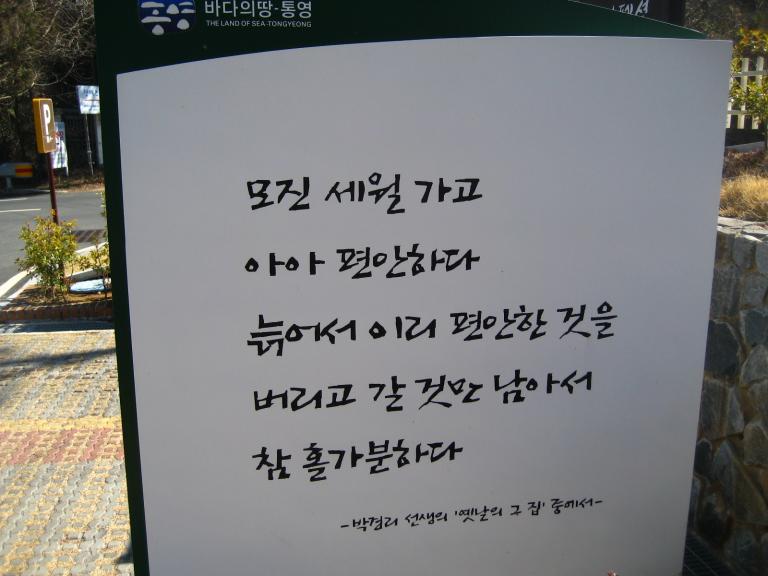 바다의땅·통영
THE LAND OF SEA·TONGYEONG
P
모진 세월 가고
아아 편안하다
늙어서 이리 편안한 것을
버리고 갈 것만 남아서
참 홀가분하다
-박경리 선생의 '옛날의 그 집' 중에서-